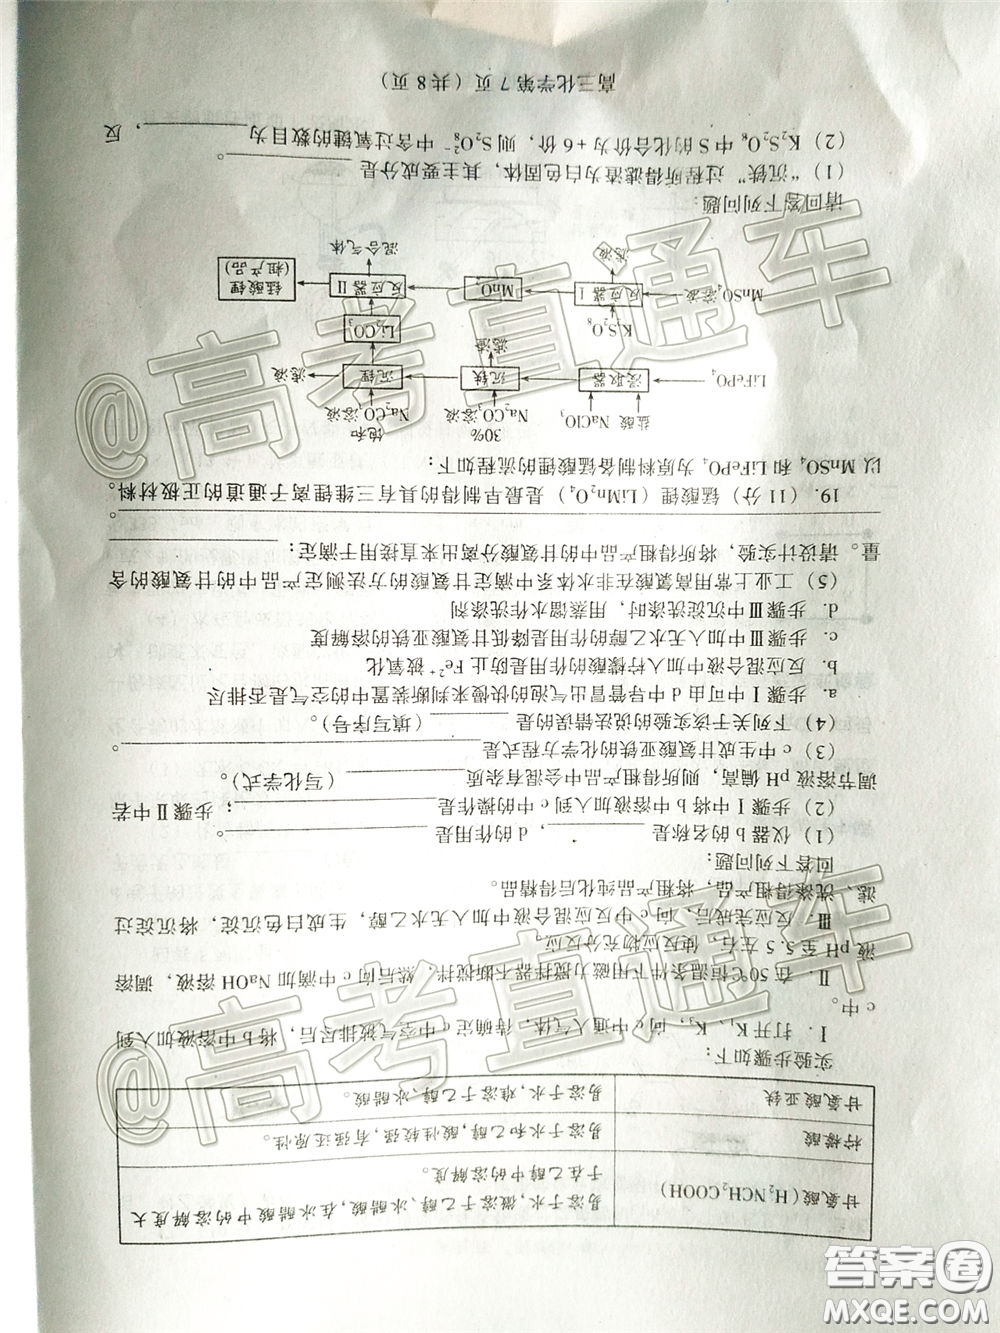 甘氨酸(H₂NCH₂COOH) 易溶于水,微溶于乙醇、冰醋酸,在冰醋酸中的溶解度大
于在乙醇中的溶解度。
柠檬酸 易溶于水和乙醇,酸性较强,有强还原性。
甘氨酸亚铁 易溶于水,难溶于乙醇、冰醋酸。
实验步骤如下:
Ⅰ. 打开K₁、K₃,向c中通入气体,待确定c中空气被排尽后,将b中溶液加入到
c中。
Ⅱ. 在50℃恒温条件下用磁力搅拌器不断搅拌,然后向c中滴加NaOH溶液,调溶
液pH至5.5左右,使反应物充分反应。
Ⅲ. 反应完成后,向c中反应混合液中加入无水乙醇,生成白色沉淀,将沉淀过
滤、洗涤得粗产品,将粗产品纯化后得精品。
回答下列问题:
(1)仪器b的名称是________,d的作用是________。
(2)步骤Ⅰ中将b中溶液加入到c中的操作是________;步骤Ⅱ中若
调节溶液pH偏高,则所得粗产品中混有杂质________(写化学式)。
(3)c中生成甘氨酸亚铁的化学方程式是________。
(4)下列关于该实验的说法错误的是________(填写序号)。
a. 步骤Ⅰ中可由d中导管冒出气泡的快慢来判断装置中的空气是否排尽
b. 反应混合液中加入柠檬酸的作用是防止Fe²⁺被氧化
c. 步骤Ⅲ中加入无水乙醇的作用是降低甘氨酸亚铁的溶解度
d. 步骤Ⅲ中沉淀洗涤时,用蒸馏水作洗涤剂
(5)工业上常用高氯酸在非水体系中滴定甘氨酸的方法测定产品中的甘氨酸的含
量。请设计实验,将所得粗产品中的甘氨酸分离出来直接用于滴定:________
________。
19.(11分)锰酸锂(LiMn₂O₄)是最早研制的具有三维锂离子通道的正极材料。
以MnSO₄和LiFePO₄为原料制备锰酸锂的流程如下:
盐酸 NaClO₃ 30% Na₂CO₃溶液 饱和 Na₂CO₃溶液
LiFePO₄ 浸取器 沉铁 沉锂 滤液
K₂S₂O₈ 滤渣 Li₂CO₃
MnSO₄溶液 反应器Ⅰ MnO₂ 反应器Ⅱ 锰酸锂(粗产品)
滤液 混合气体
请回答下列问题:
(1)“沉铁”过程所得滤渣为白色固体,其主要成分是________。
(2)K₂S₂O₈中S的化合价为+6价,则S₂O₈²⁻中含过氧键的数目为________,反
高三化学第7页(共8页)
@高考直通车
@高考直通车
答案圈
MXQE.COM